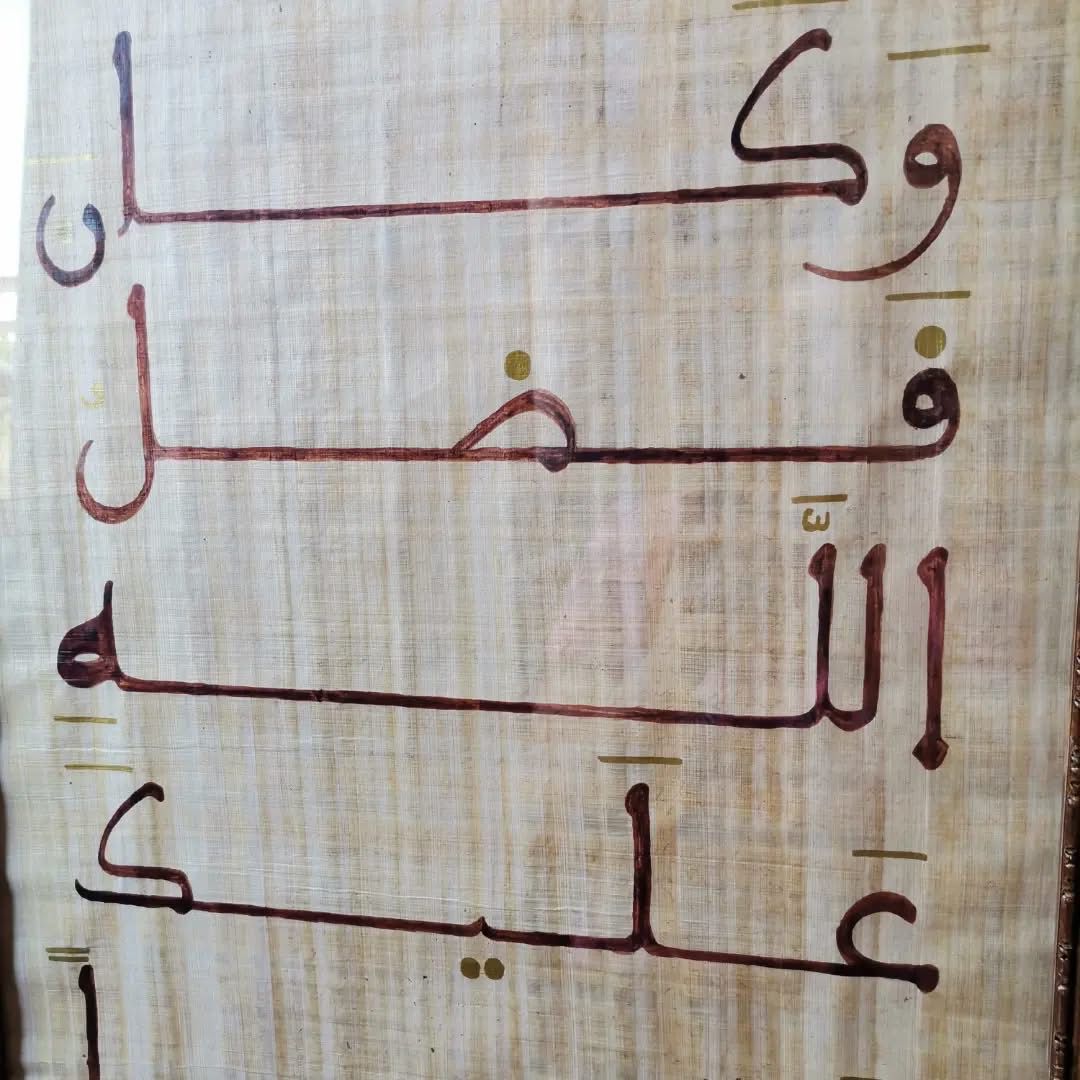 وَكَانَ
فَضلُ
اللَّهِ
عَلَيكَ